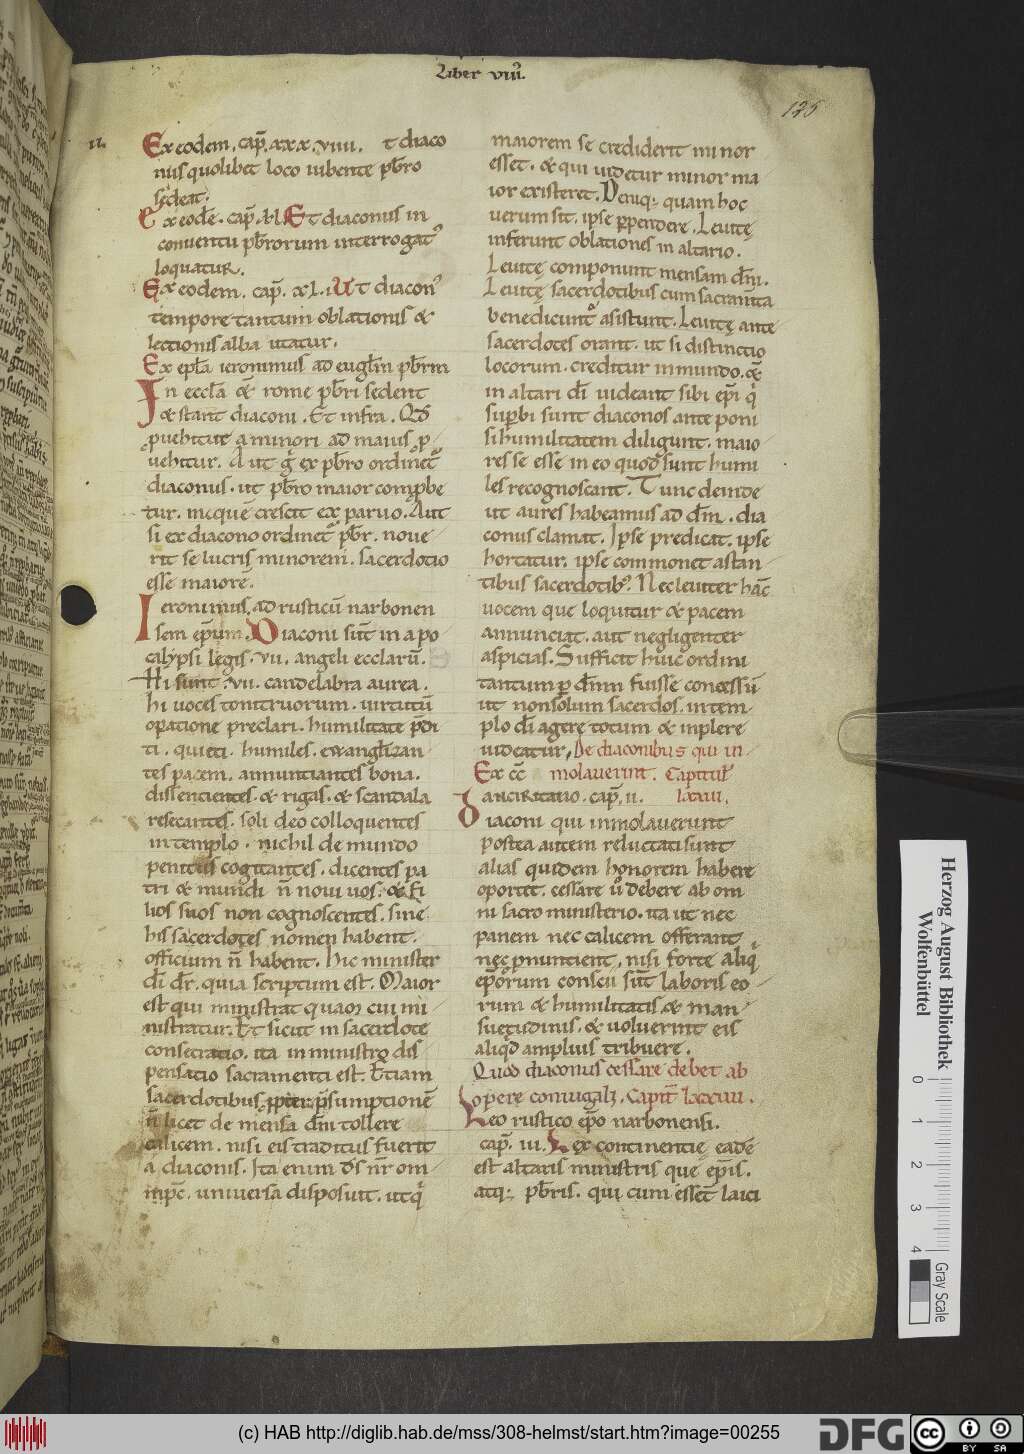 Liber viii.
125
Ex eodem. cap̄. xxx.viiii. t diaco
nus quolibet loco iubente pb̄ro
sedeat.
Ex eodē. cap̄. xl. Et diaconus in
conuentu pb̄rorum interrogatᵘ
loquatur.
Ex eodem. cap̄. xl.i. Ut diaconᵘ
tempore tantum oblationis &
lectionis alba utatur.
Ex epl̄a ieronimus ad eugl̄in pb̄rm
In eccl̄a &̄ rome pb̄ri sedent
& stant diaconi. Et infra. Qd̄
ꝓuehitur a minori ad maius ꝓ
uehitur. Aut g̊ ex pb̄ro ordinet᷑
diaconus. ut pb̄ro maior comꝓbe
tur. in quē crescit ex paruo. Aut
si ex diacono ordinet᷑ pb̄r. noue
rit se lucris minorem. sacerdotio
esse maiorē.
Ieronimus ad rusticū narbonen
sem ep̄um. Diaconi sūt in apo
calypsi legis. vii. angeli ecclarū.
Hi sunt .vii. candelabra aurea.
hi uoces tonitruorum. uirtutū
oꝑatione preclari. humilitate p̄di
ti. quieti. humiles. ewangl̄izan
tes pacem. annunciantes bona.
dissencientes. & rigas. & scandala
resecantes. soli deo colloquentes
in templo. nichil de mundo
penitus cogitantes. dicentes pa
tri & matri n̄ noui uos. & fi
lios suos non cognoscentes. sine
his sacerdotes nomen habent.
officium n̄ habent. Hic minister
dī dr̄. quia scriptum est. Maior
est qui ministrat quam cui mi
nistratur. Et sicut in sacerdote
consecratio. ita in ministro dis
pensatio sacramenti est. Etiam
sacerdotibus ꝓpter p̄sumptionē
n̄ licet de mensa dn̄i tollere
calicem. nisi eis traditus fuerit
a diaconis. Ita enim ds̄ nr̄ om
nip̄c. uniuersa disposuit. ut qͥ
maiorem se crediderit minor
esset. & qui uidetur minor ma
ior existeret. Deniq; quam hoc
uerum sit. ipse ꝑpendere. Leuitę
inferunt oblationes in altario.
Leuitę componunt mensam dn̄i.
Leuitę sacerdotibus cum sacram̄ta
benedicunt᷑ asistunt. Leuitę ante
sacerdotes orant. ut si distinctio
locorum. creditur in mundo. &̄
in altari dī uideant sibi ep̄i qͥ
suꝑbi sunt diaconos ante poni
si humilitatem diligunt. maio
res se esse in eo quod sunt humi
les recognoscant. Tunc deinde
ut aures habeamus ad dn̄m. dia
conus clamat. Ipse predicat. ipse
hortatur. ipse commonet astan
tibus sacerdotibᵘ. Nec leuiter hāc
uocem que loquitur & pacem
annunciat. aut negligenter
aspicias. Sufficit huic ordini
tantum ꝑ dn̄m fuisse concessū
ut non solum sacerdos. in tem
plo dī agere totum & inplere
uideatur. De diaconibus qui in
molauerint. Capitul̄
Ex cc̄
lxxiii.
anciritano. cap̄. ii.
Diaconi qui inmolauerunt
postea autem reluctati sunt
alias quidem honorem habere
oportet. cessare u᷑ debere ab om
ni sacro ministerio. ita ut nec
panem nec calicem offerant
nec ꝓnuntient. nisi forte aliqͥ
ep̄orum conscii sūt laboris eo
rum & humilitatis. & man
suetudinis. & uoluerint eis
aliqͥd amplius tribuere.
Quod diaconus cessare debet ab
opere coniugali. Capit̄ lxxiiii.
Leo rustico ep̄o narbonensi.
cap̄. iii. Lex continentię eadē
est altaris ministris que ep̄is.
atq; pb̄ris. qui cum essent laici
Herzog August Bibliothek
Wolfenbüttel
0 1 2 3 4
Gray Scale
(c) HAB http://diglib.hab.de/mss/308-helmst/start.htm?image=00255
DFG
cc BY SA